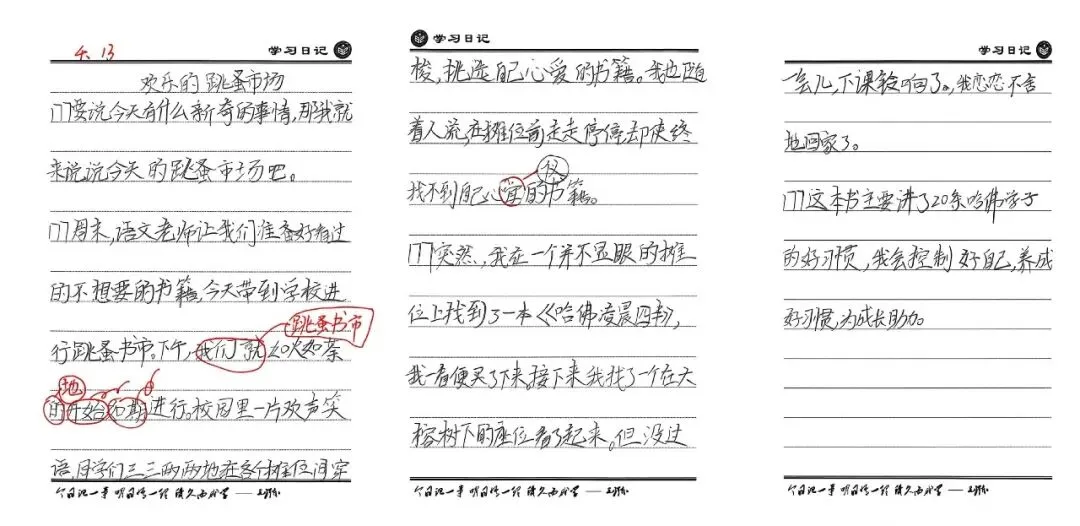 4. 13
学习日记
欢乐的跳蚤市场
要说今天有什么新奇的事情,那我就
来说说今天的跳蚤市场吧。
周末,语文老师让我们准备好看过
的不想要的书籍,今天带到学校进
跳蚤书市
行跳蚤书市。下午,我们就如火如荼
地
的开始如期进行。校园里一片欢声笑
语,同学们三三两两地在各个摊位间穿
今日记一章 明日
学习日记
梭,挑选自己心爱的书籍。我也随
着人流,在摊位前走走停停,却使终
仪
找不到自己心宜的书籍。
突然,我在一个并不显眼的摊
位上找到了一本《哈佛凌晨四
我一看便买了下来。接下来,我找了一个在大
榕树下的座位看了起来。但没过
今日记一章 明日
学习日记
一会儿,下课铃响了。我恋恋不舍
地回家了。
这本书主要讲了20条哈佛学子
的好习惯,我会控制好自己,养成
好习惯,为成长助力。
今日记一章 明日